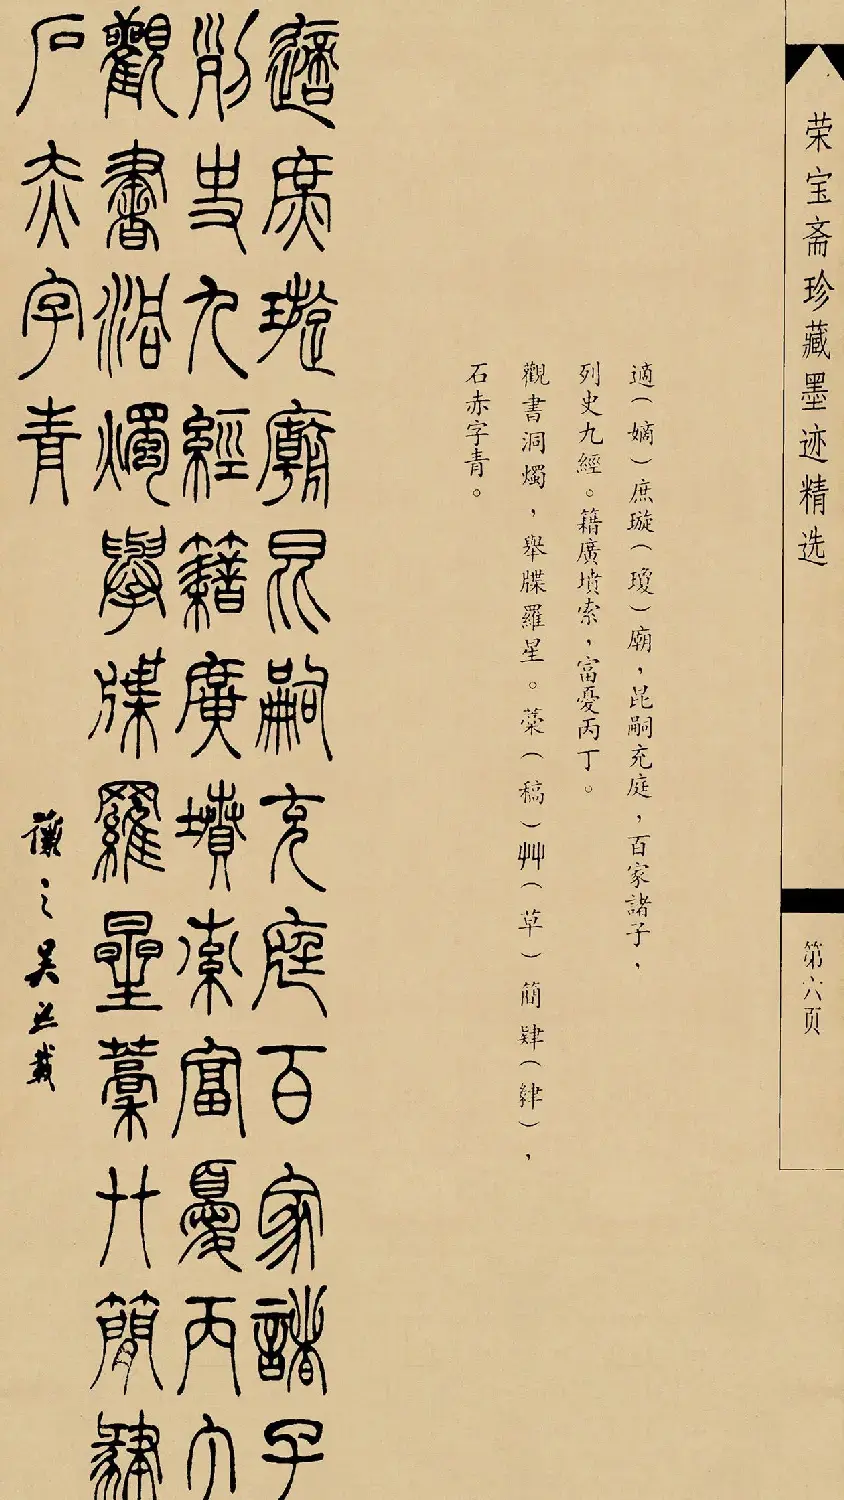 荣宝斋珍藏墨迹精选
第六页
適(嫡)庶璇(瓊)廟,昆嗣充庭,百家諸子,
列史九經。籍廣墳索,富憂丙丁。
觀書洞燭,舉牒羅星。藁(稿)艸(草)簡肄(肄),
石赤字青。
適庶璇廟昆嗣充庭百家諸子
列史九經籍廣墳索富憂丙丁
觀書洞燭舉牒羅星藁艸簡肄
石赤字青
讓之吴熙載